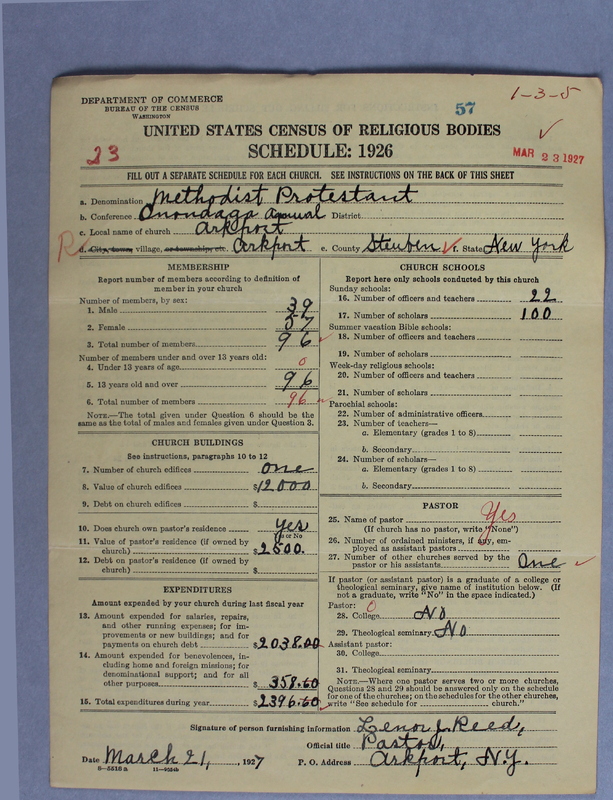 DEPARTMENT OF COMMERCE
BUREAU OF THE CENSUS
WASHINGTON
57
1-3-5
UNITED STATES CENSUS OF RELIGIOUS BODIES
23
SCHEDULE: 1926
MAR 23 1927
FILL OUT A SEPARATE SCHEDULE FOR EACH CHURCH. SEE INSTRUCTIONS ON THE BACK OF THIS SHEET
a. Denomination Methodist Protestant
b. Conference Onondaga Annual District
c. Local name of church Arkport
R d. City, town, village, or township, etc. Arkport e. County Steuben f. State New York
MEMBERSHIP
Report number of members according to definition of
member in your church
Number of members, by sex:
1. Male 39
2. Female 57
3. Total number of members 96
Number of members under and over 13 years old:
4. Under 13 years of age 0
5. 13 years old and over 96
6. Total number of members 96
NOTE.—The total given under Question 6 should be the
same as the total of males and females given under Question 3.
CHURCH BUILDINGS
See instructions, paragraphs 10 to 12
7. Number of church edifices One
8. Value of church edifices $12000
9. Debt on church edifices $
10. Does church own pastor's residence Yes
Yes or No
11. Value of pastor's residence (if owned by
church) $2500.
12. Debt on pastor's residence (if owned by
church) $
EXPENDITURES
Amount expended by your church during last fiscal year
13. Amount expended for salaries, repairs,
and other running expenses; for im-
provements or new buildings; and for
payments on church debt $2038.00
14. Amount expended for benevolences, in-
cluding home and foreign missions; for
denominational support; and for all
other purposes $358.60
15. Total expenditures during year $2396.60
CHURCH SCHOOLS
Report here only schools conducted by this church
Sunday schools:
16. Number of officers and teachers 22
17. Number of scholars 100
Summer vacation Bible schools:
18. Number of officers and teachers
19. Number of scholars
Week-day religious schools:
20. Number of officers and teachers
21. Number of scholars
Parochial schools:
22. Number of administrative officers
23. Number of teachers—
a. Elementary (grades 1 to 8)
b. Secondary
24. Number of scholars—
a. Elementary (grades 1 to 8)
b. Secondary
PASTOR
25. Name of pastor Yes
(If church has no pastor, write "None")
26. Number of ordained ministers, if any, em-
ployed as assistant pastors
27. Number of other churches served by the
pastor or his assistants One
If pastor (or assistant pastor) is a graduate of a college or
theological seminary, give name of institution below. (If
not a graduate, write "No" in the space indicated.)
Pastor: 0
28. College No
29. Theological seminary No
Assistant pastor:
30. College
31. Theological seminary
NOTE.—Where one pastor serves two or more churches,
Questions 28 and 29 should be answered only on the schedule
for one of the churches; on the schedules for the other churches,
write "See schedule for church"
Signature of person furnishing information Lenor J. Reed,
Official title Pastor,
Date March 21, 1927 P. O. Address Arkport, N.Y.